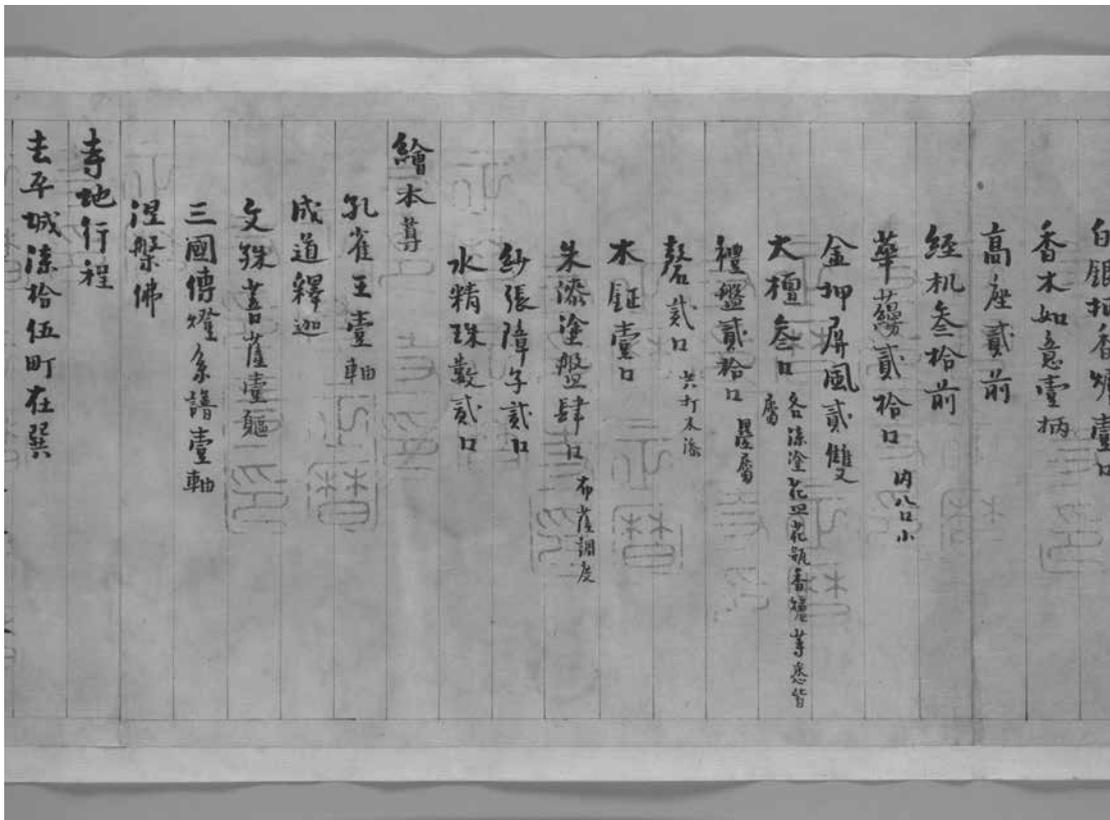 白銀打香爐壹口
香木如意壹柄
高座貳前
経机叁拾前
華蘰貳拾口 内八口小
金押屏風貳雙
大壇叁口 各漆塗花皿花瓶香爐等悉皆
磬貳口 共打木漆
禮盤貳拾口
木鉦壹口
朱漆塗盤肆口 布薩調度
紗張障子貳口
水精珠數貳口
繪本尊
孔雀王壹軸
成道釋迦
文殊菩薩壹軀
三國傳燈系譜壹軸
涅槃佛
寺地行程
去平城漆拾伍町在巽